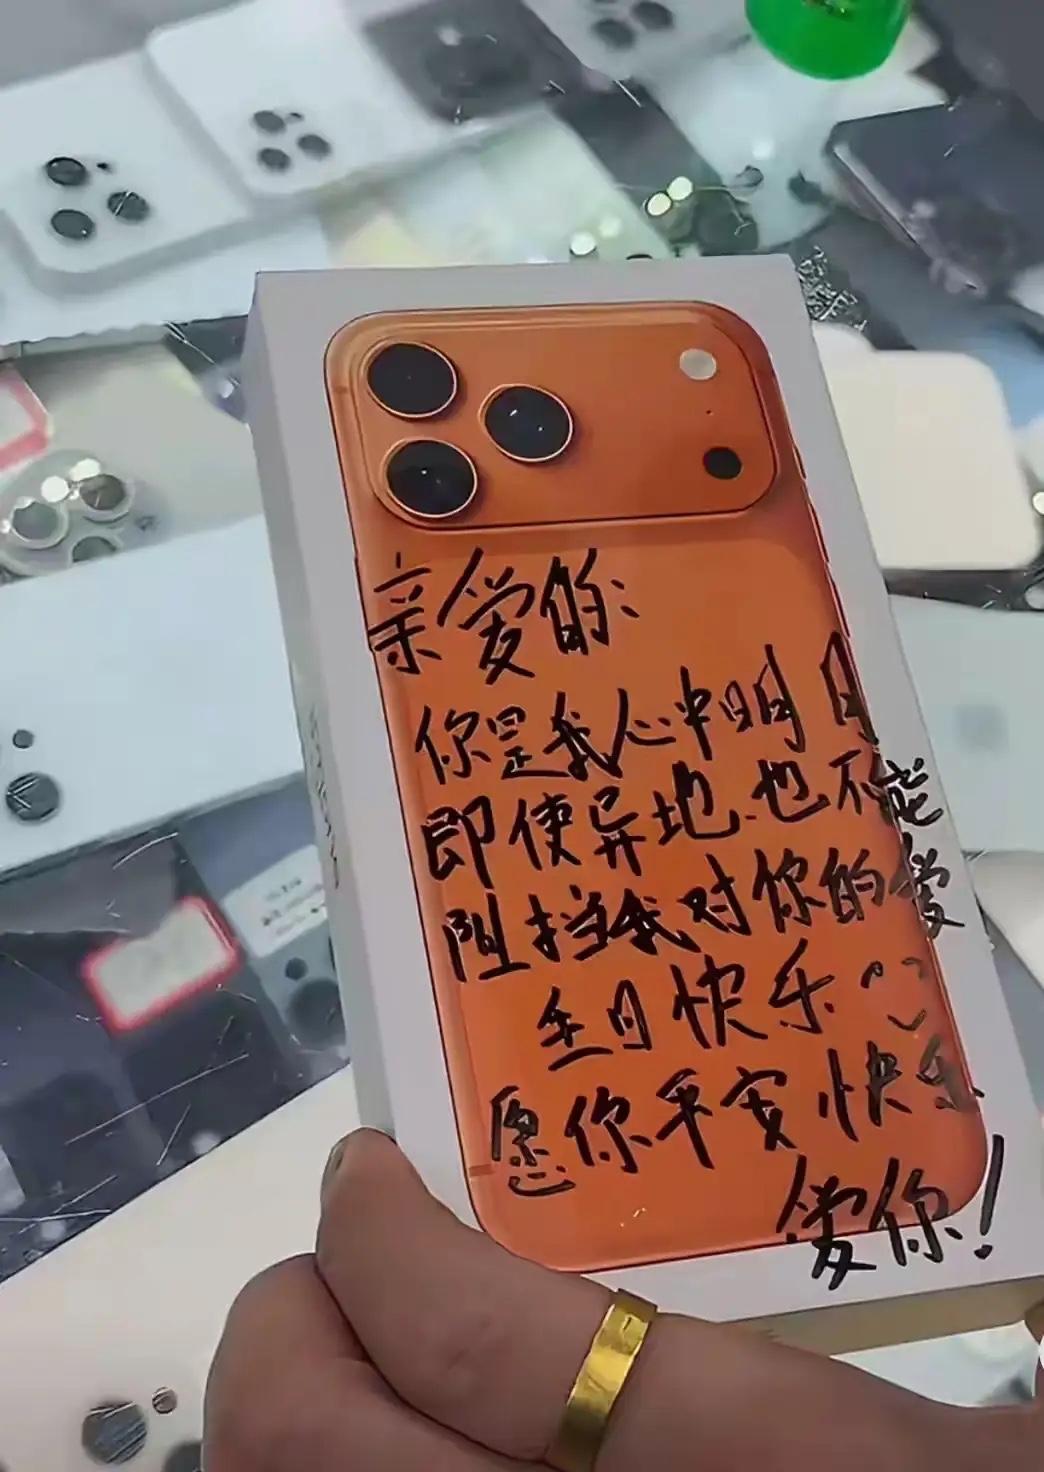 亲爱的:
你是我心中明月
即使异地也不能
阻挡我对你的爱
生日快乐
愿你平安快乐
爱你!